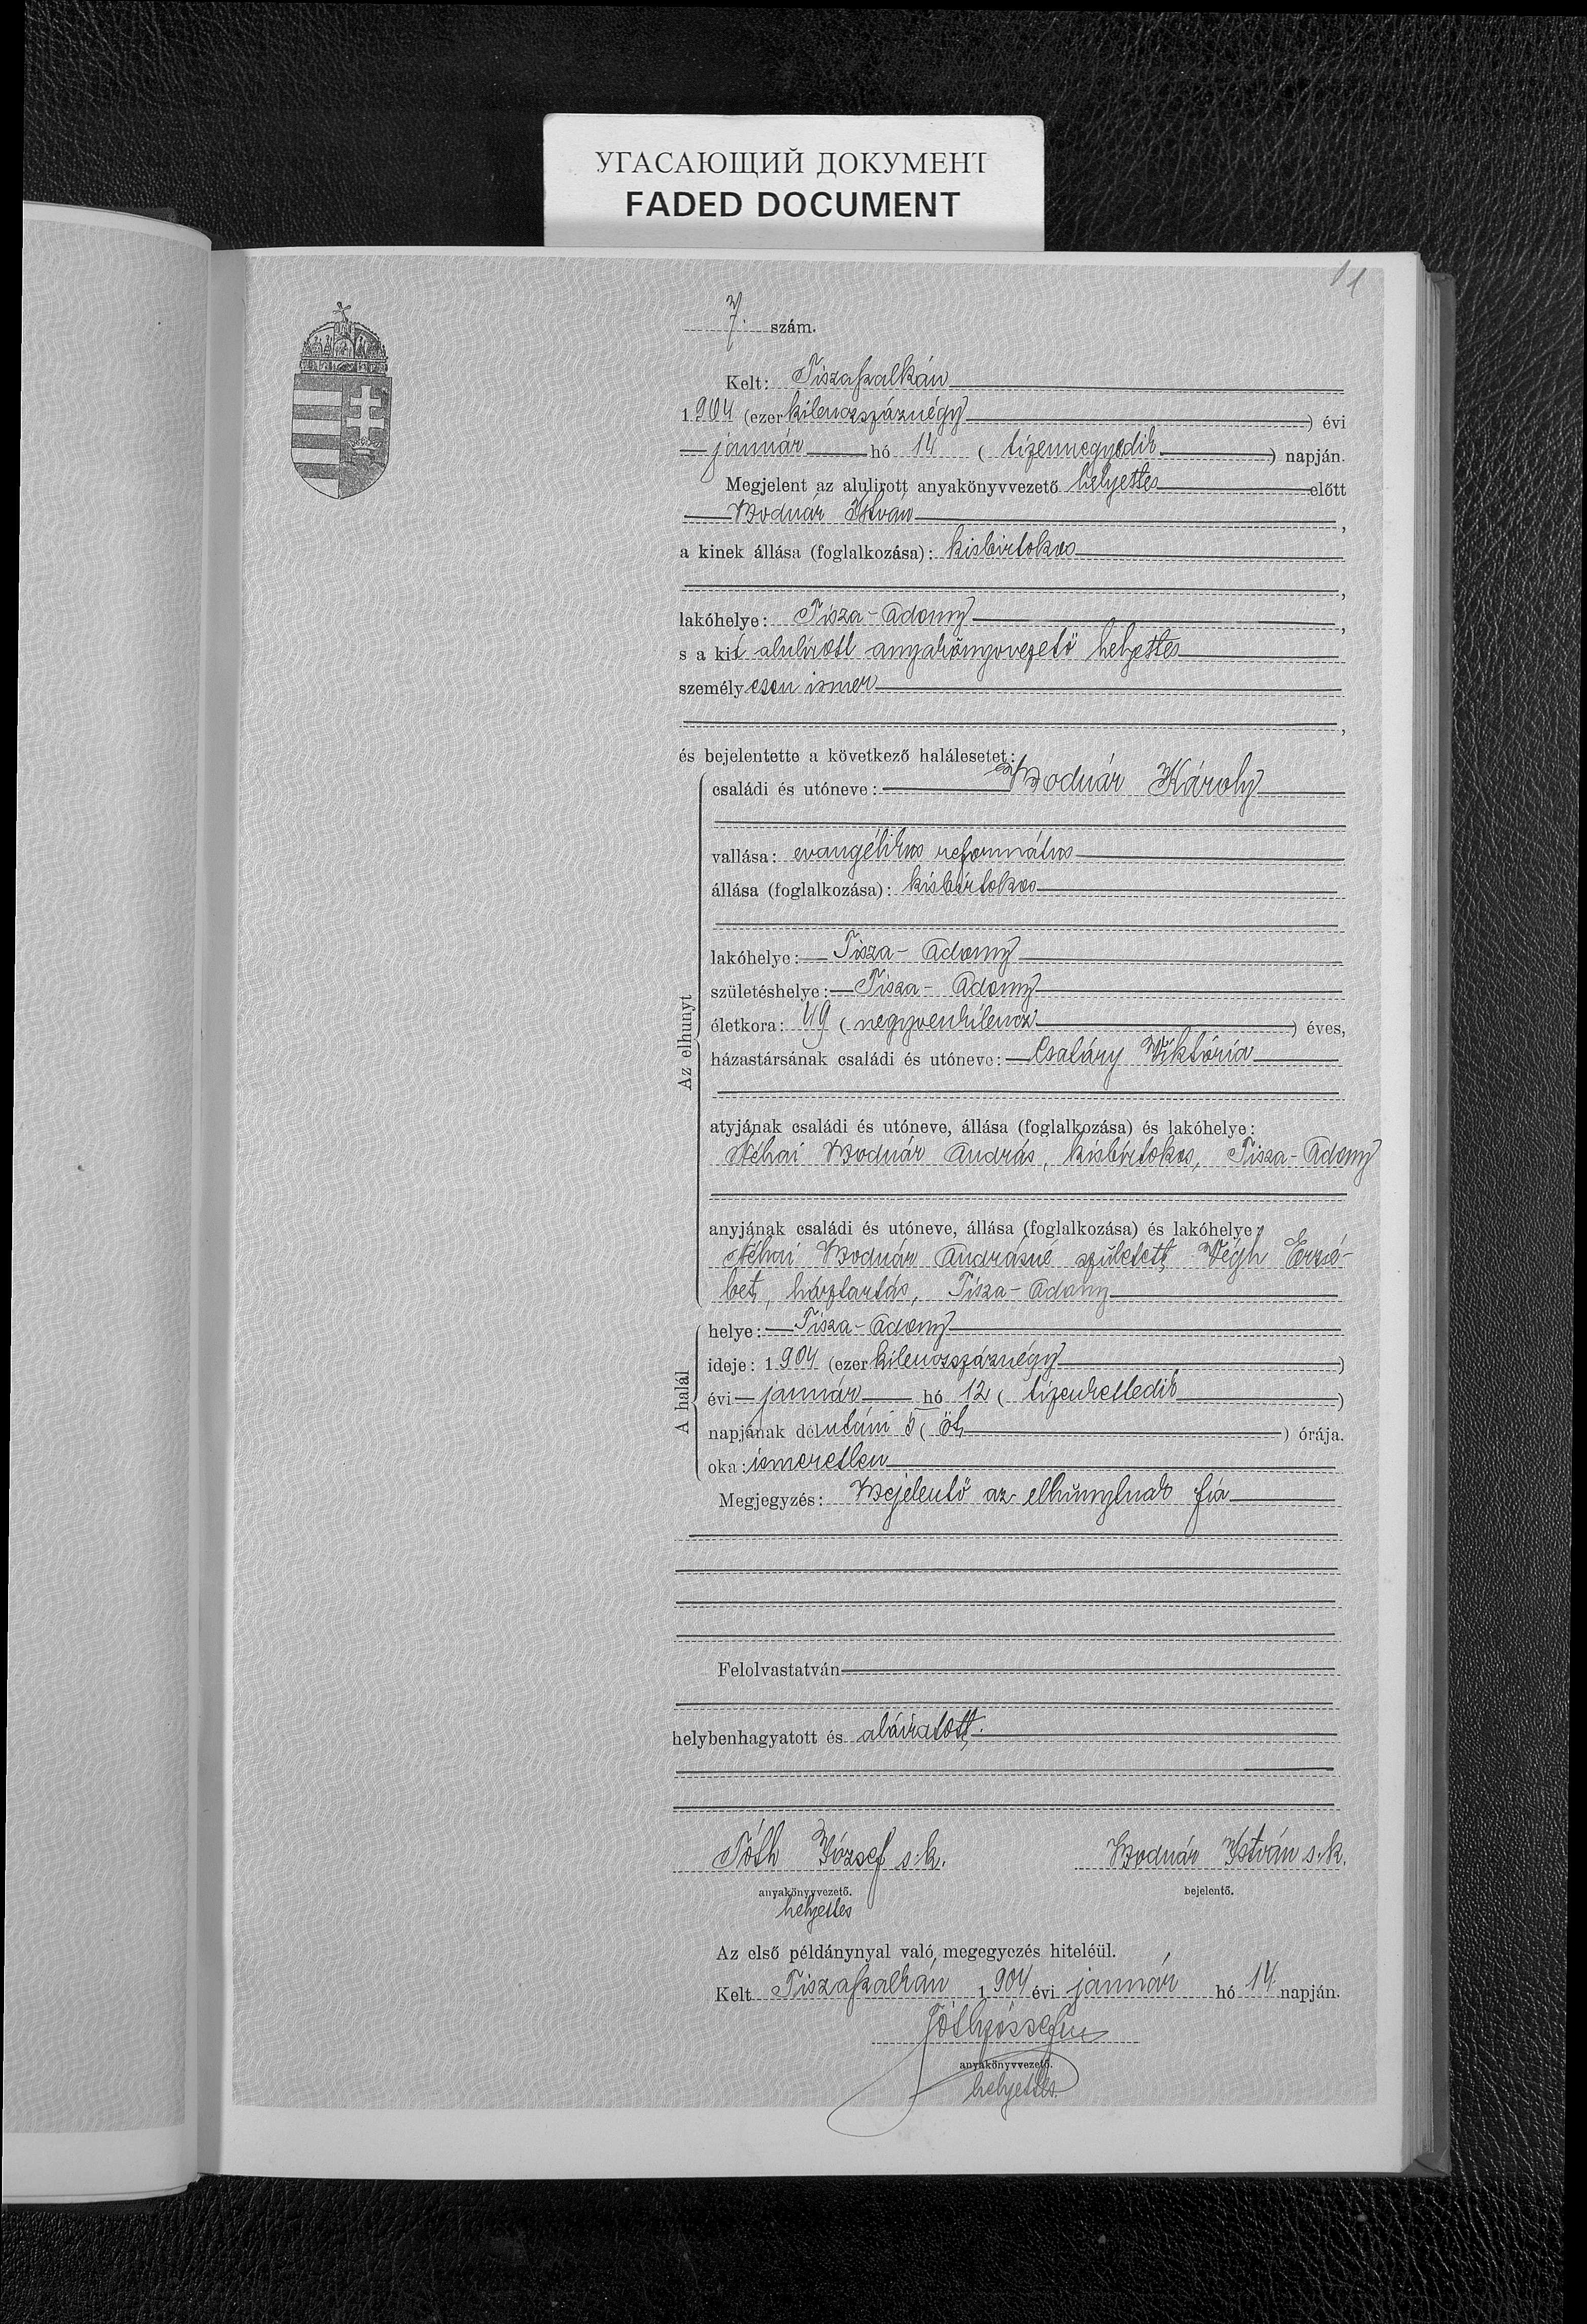 УГАСАЮЩИЙ ДОКУМЕНТ
FADED DOCUMENT
7. szám.
Kelt: Tiszaszalkán
1904 (ezer kilenczszáznégy) évi
január hó 14 (tizennegyedik) napján.
Megjelent az alulirott anyakönyvvezető helyettes előtt
Bodnár István,
a kinek állása (foglalkozása): kisbirtokos
,
lakóhelye: Tisza-Adony,
s a kit alulirott anyakönyvvezető helyettes
személyesen ismer
,
és bejelentette a következő halálesetet:
Az elhunyt
családi és utóneve: Bodnár Károly
vallása: evangélikos református
állása (foglalkozása): kisbirtokos
lakóhelye: Tisza-Adony
születéshelye: Tisza-Adony
életkora: 49 (negyvenkilencz) éves,
házastársának családi és utóneve: Csatáry Viktória
atyjának családi és utóneve, állása (foglalkozása) és lakóhelye:
Néhai Bodnár András, kisbirtokos, Tisza-Adony
anyjának családi és utóneve, állása (foglalkozása) és lakóhelye:
Néhai Bodnár Andrásné született Végh Erzsé-
bet, háztartás, Tisza-Adony
A halál
helye: Tisza-Adony
ideje: 1904 (ezer kilenczszáznégy)
évi január hó 12 (tizenkettedik)
napjának délutáni 5 (öt) órája.
oka: ismeretlen
Megjegyzés: Bejelentő az elhúnytnak fia
Felolvastatván
helybenhagyatott és aláiratott.
Tóth József s.k. Bodnár István s.k.
anyakönyvvezető. bejelentő.
helyettes
Az első példánynyal való megegyezés hiteléül.
Kelt Tiszaszalkán 1904 évi január hó 14 napján.
Tóth József
anyakönyvvezető.
helyettes.